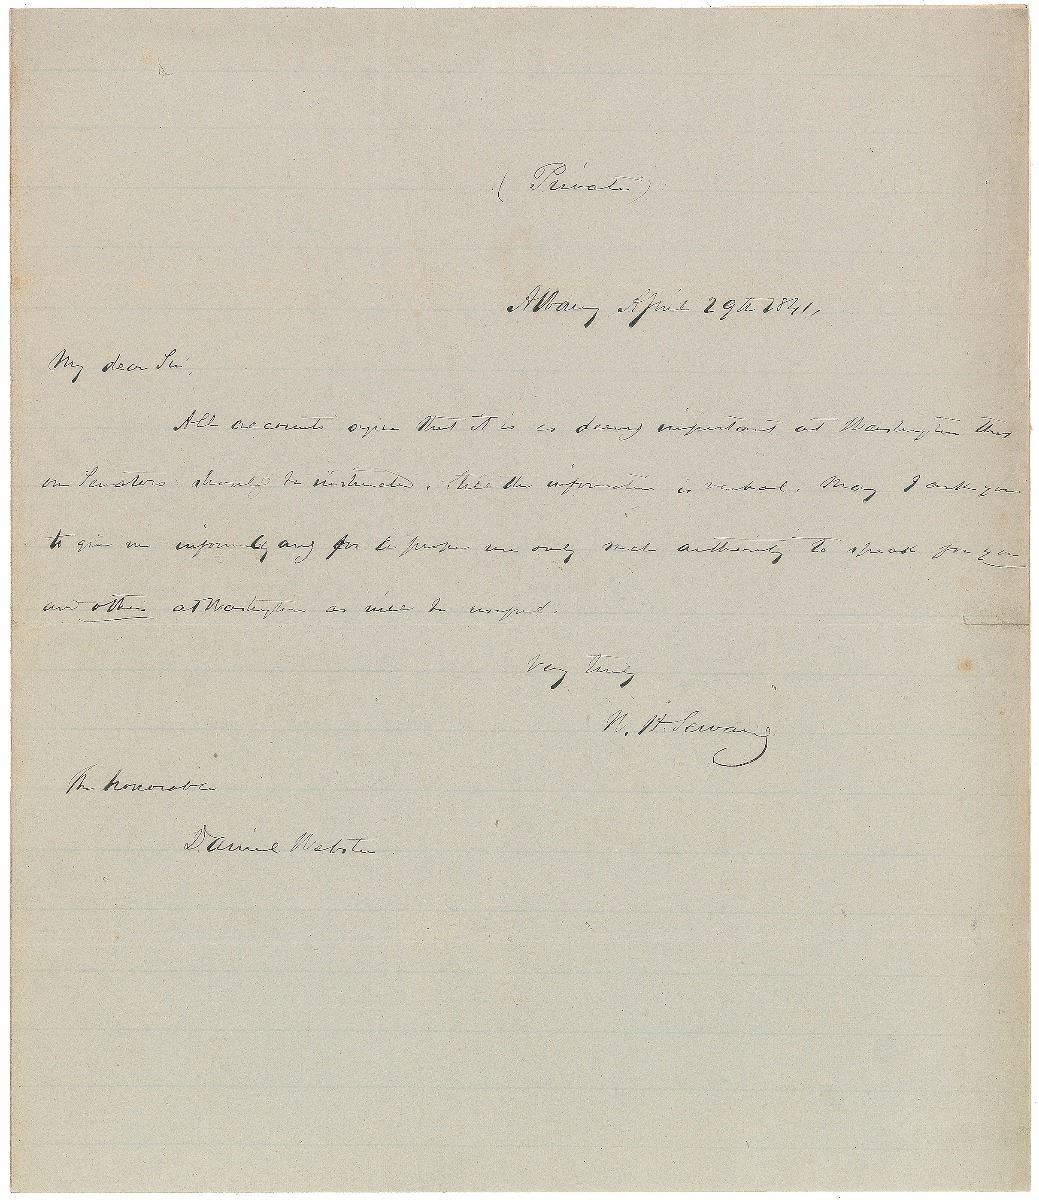 (Private)
Albany April 29th 1841.
My dear Sir,
All accounts agree that it is deemed important at Washington that
our Senators should be instructed. Still the information is verbal. May I ask you
to give me informally and for a proper use only such authority to speak for you
and others at Washington as may be
Very truly
W. H. Seward
The honorable
Daniel Webster